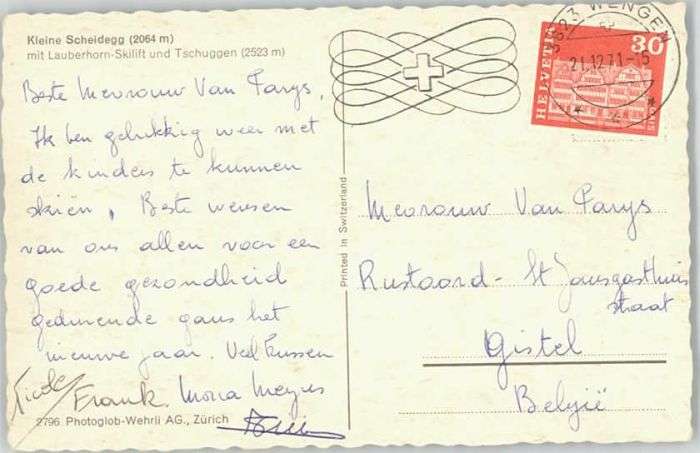 Kleine Scheidegg (2064 m)
mit Lauberhorn-Skilift und Tschuggen (2523 m)
Beste Mevrouw Van Parys,
Ik ben gelukkig weer met
de kinders te kunnen
skiën, Beste wensen
van ons allen voor een
goede gezondheid
gedurende gans het
nieuwe jaar. Veel kussen
Nicole Frank Mona
2796 Photoglob-Wehrli AG., Zürich
Printed in Switzerland
3823 WENGEN
21.12.71-5
HELVETIA
30
Mevrouw Van Parys
Rustoord - St Jansgasthuis
straat
Gistel
België